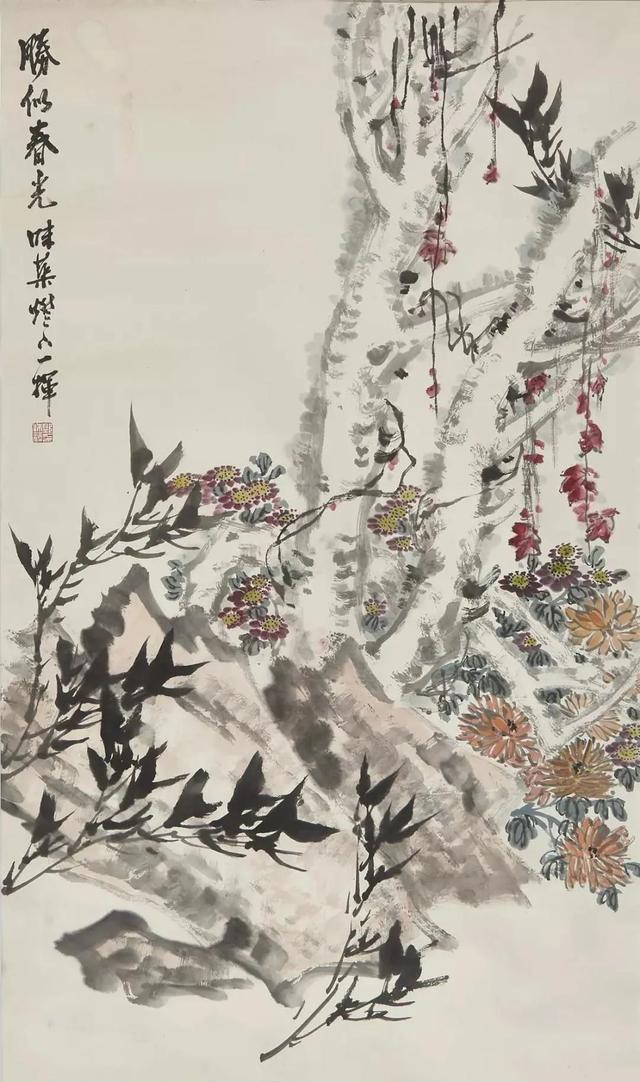 勝似春光 味蕖燈下一揮